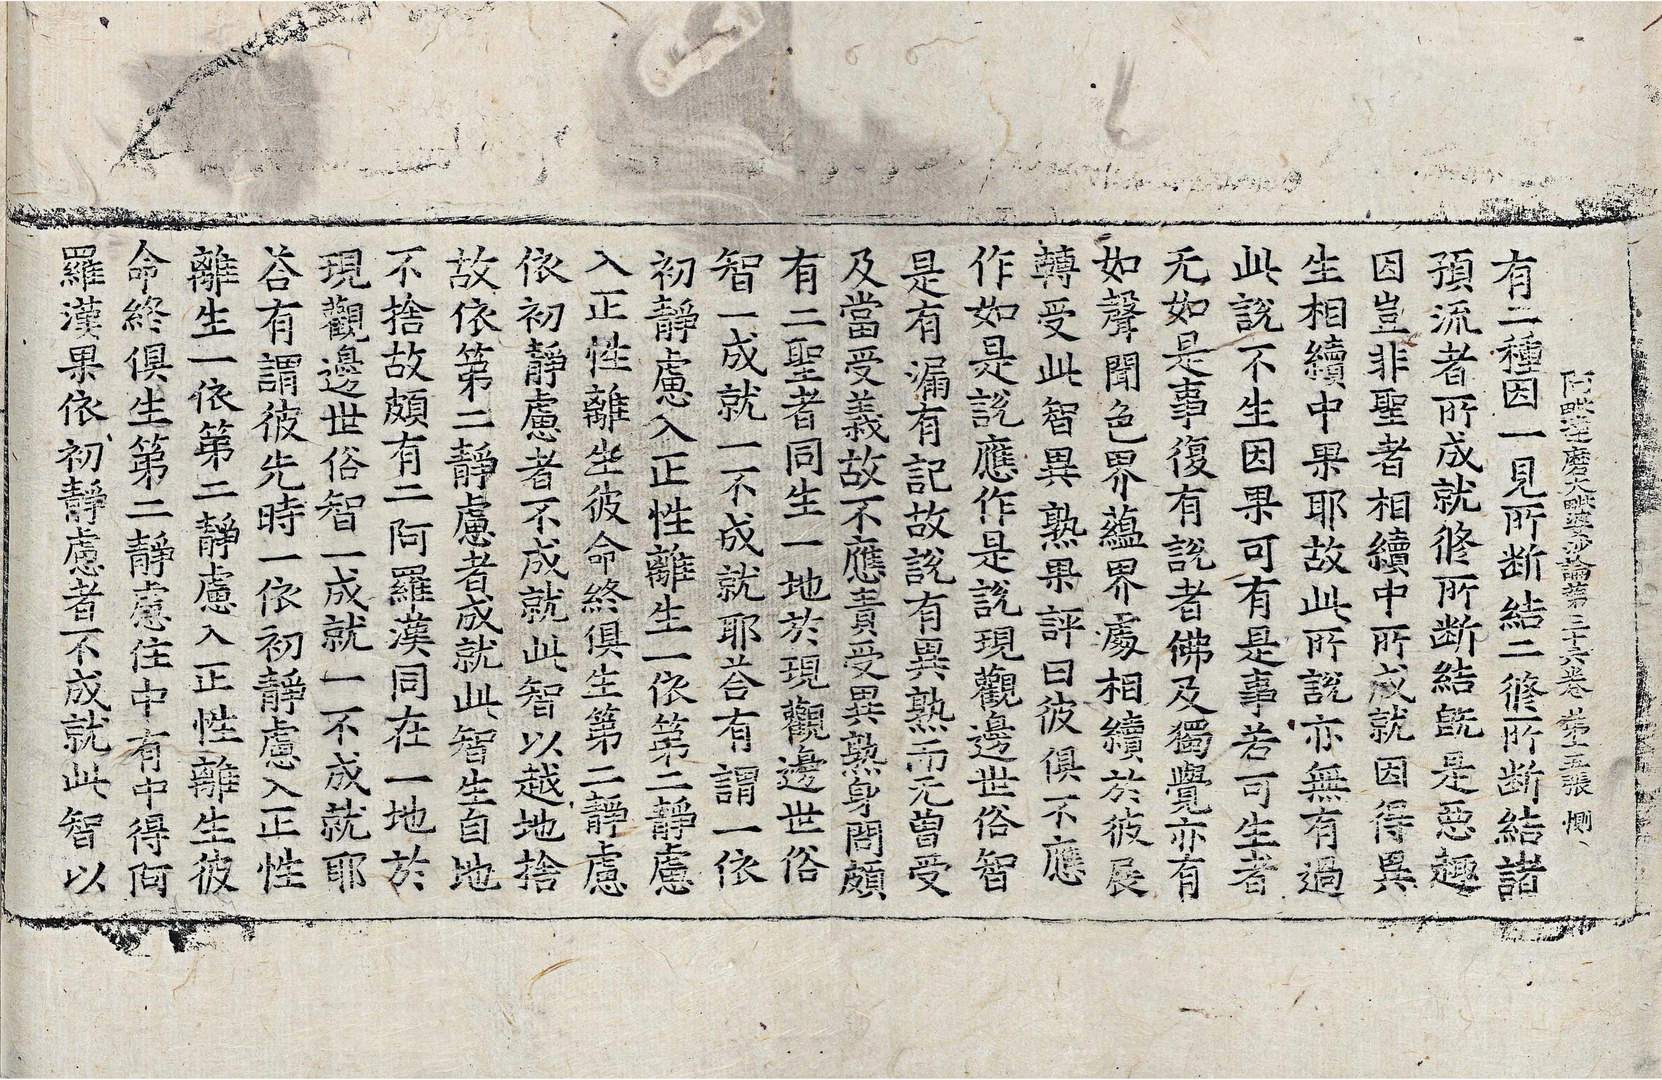 阿毗達磨大毗婆沙論第三十六卷 第十五張 惻
有二種因一見所断結二修所断結諸
預流者所成就修所断結旣是惡趣
因豈非聖者相續中所成就因得異
生相續中果耶故此所說亦無有過
此說不生因果可有是事若可生者
无如是事復有說者佛及獨覺亦有
如聲聞色界蘊界處相續於彼展
轉受此智異熟果評曰彼俱不應
作如是說應作是說現觀邊世俗智
是有漏有記故說有異熟而无曾受
及當受義故不應責受異熟身問頗
有二聖者同生一地於現觀邊世俗
智一成就一不成就耶荅有謂一依
初靜慮入正性離生一依第二靜慮
入正性離生彼命終俱生第二靜慮
依初靜慮者不成就此智以越地捨
故依第二靜慮者成就此智生自地
不捨故頗有二阿羅漢同在一地於
現觀邊世俗智一成就一不成就耶
荅有謂彼先時一依初靜慮入正性
離生一依第二靜慮入正性離生彼
命終俱生第二靜慮住中有中得阿
羅漢果依初靜慮者不成就此智以